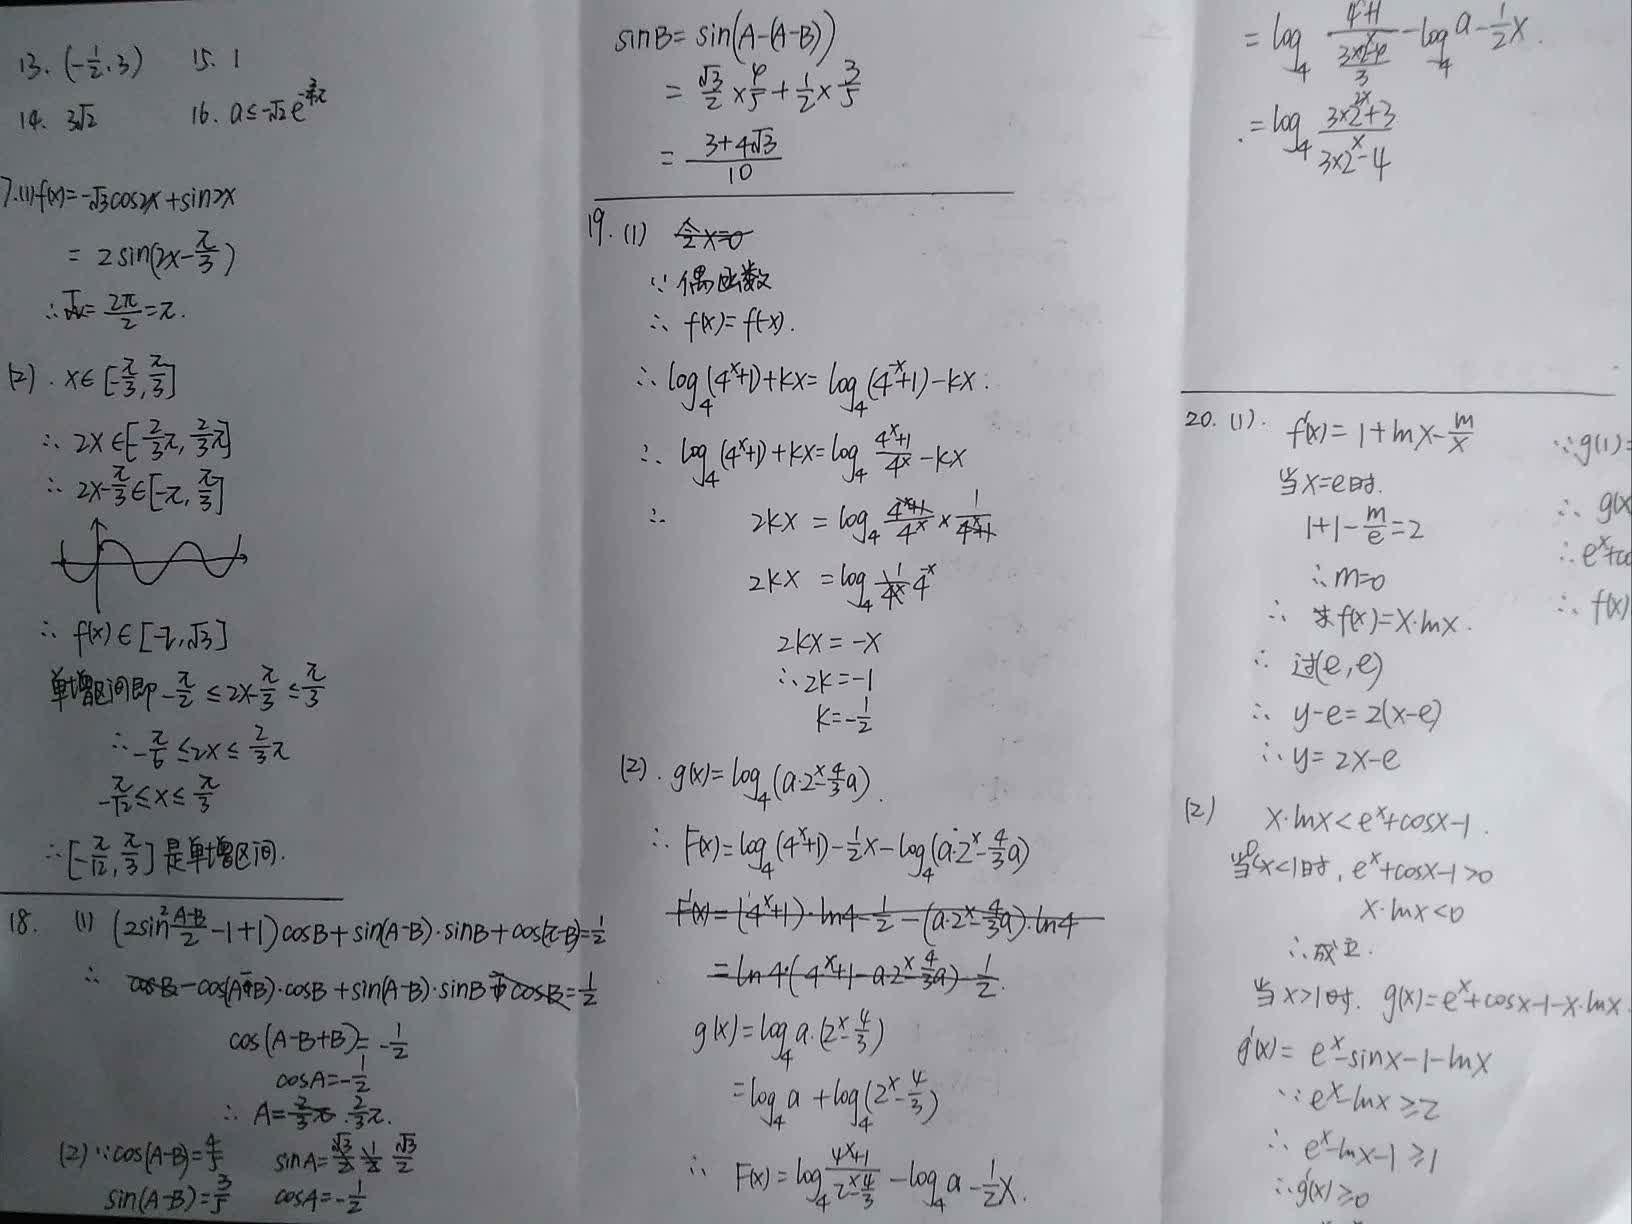 13. (-1/2, 3)  15. 1
14. 3√2  16. a≤-√2e^
7.(1) f(x)=-√3cos2x+sin2x
=2sin(2x-π/3)
∴T=2π/2=π.
(2). x∈[-π/3, π/3]
∴ 2x∈[-2/3π, 2/3π]
∴ 2x-π/3∈[-π, π/3]
∴ f(x)∈[-2,√3]
单增区间即 -π/2≤2x-π/3≤π/3
∴-π/6≤2x≤2/3π
-π/12≤x≤π/3
∴[-π/12, π/3]是单增区间.
18. (1) (2sin²(A-B)/2-1+1)cosB+sin(A-B)·sinB+cos(π-B)=1/2
∴ cosB-cos(A-B)·cosB+sin(A-B)·sinB-cosB=1/2
cos(A-B+B)=-1/2
cosA=-1/2
∴ A=2/3π 2/3π.
(2) ∵cos(A-B)=4/5  sinA=√3/2 1/2 √3/2
sin(A-B)=3/5  cosA=-1/2
sinB=sin(A-(A-B))
=√3/2×4/5+1/2×3/5
=(3+4√3)/10
19. (1) 令x=0
∵ 偶函数
∴ f(x)=f(-x).
∴ log₄(4^x+1)+kx=log₄(4^-x+1)-kx.
∴ log₄(4^x+1)+kx=log₄ (4^x+1)/4^x -kx
∴ 2kx=log₄ (4^x+1)/4^x × 1/(4^x+1)
2kx=log₄ 1/4^x 4^-x
2kx=-x
∴2k=-1
k=-1/2
(2). g(x)=log₄(a·2^x-4/3a).
∴ F(x)=log₄(4^x+1)-1/2x-log₄(a·2^x-4/3a)
F'(x)=(4^x+1)·ln4-1/2-(a·2^x-4/3a)·ln4
=ln4·(4^x+1-a·2^x-4/3a)-1/2.
g(x)=log₄a·(2^x-4/3)
=log₄a+log₄(2^x-4/3)
∴ F(x)=log₄ (4^x+1)/(2^x-4/3) -log₄a-1/2x.
=log₄ (4^x+1)/((3×2^x-4)/3) -log₄a-1/2x.
=log₄ (3×2^2x+3)/(3×2^x-4)
20. (1). f'(x)=1+lnx-m/x
当x=e时.
1+1-m/e=2
∴m=0
∴ f(x)=x·lnx.
∴ 过(e,e)
∴ y-e=2(x-e)
∴y=2x-e
(2) x·lnx<e^x+cosx-1.
当0<x<1时, e^x+cosx-1>0
x·lnx<0
∴成立.
当x>1时. g(x)=e^x+cosx-1-x·lnx.
g'(x)=e^x-sinx-1-lnx
∵e^x-lnx≥2
∴ e^x-lnx-1≥1
∴g'(x)≥0
∵g(1)=
∴ g(x
∴e^x+co
∴ f(x)